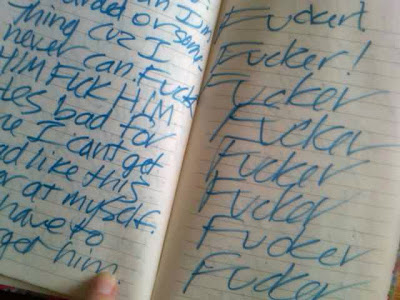 an I'm
arded or some
thing cuz I
never can. Fuck
HIM FUCK HIM
He's bad for
me I can't get
ad like this
er at myself.
have to
get him.
Fucker!
Fucker!
Fucker
Fucker
Fucker
Fucker
Fucker
Fucker